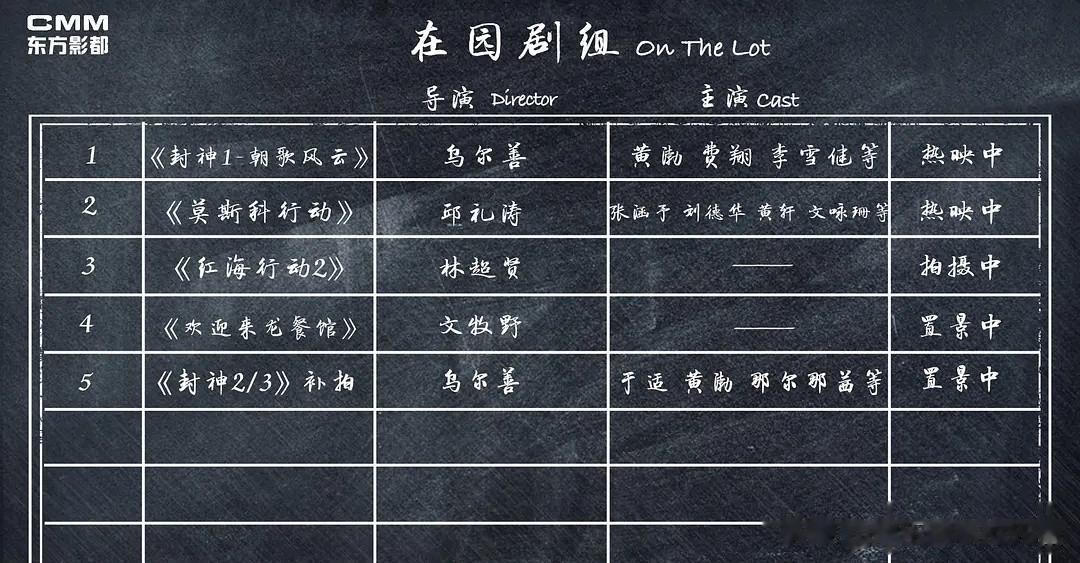 CMM
东方影都
在园剧组 On The Lot
导演 Director 主演 Cast
1 《封神1-朝歌风云》 乌尔善 黄渤 费翔 李雪健等 热映中
2 《莫斯科行动》 邱礼涛 张涵予 刘德华 黄轩 文咏珊等 热映中
3 《红海行动2》 林超贤 —— 拍摄中
4 《欢迎来龙餐馆》 文牧野 —— 置景中
5 《封神2/3》补拍 乌尔善 于适 黄渤 那尔那茜等 置景中